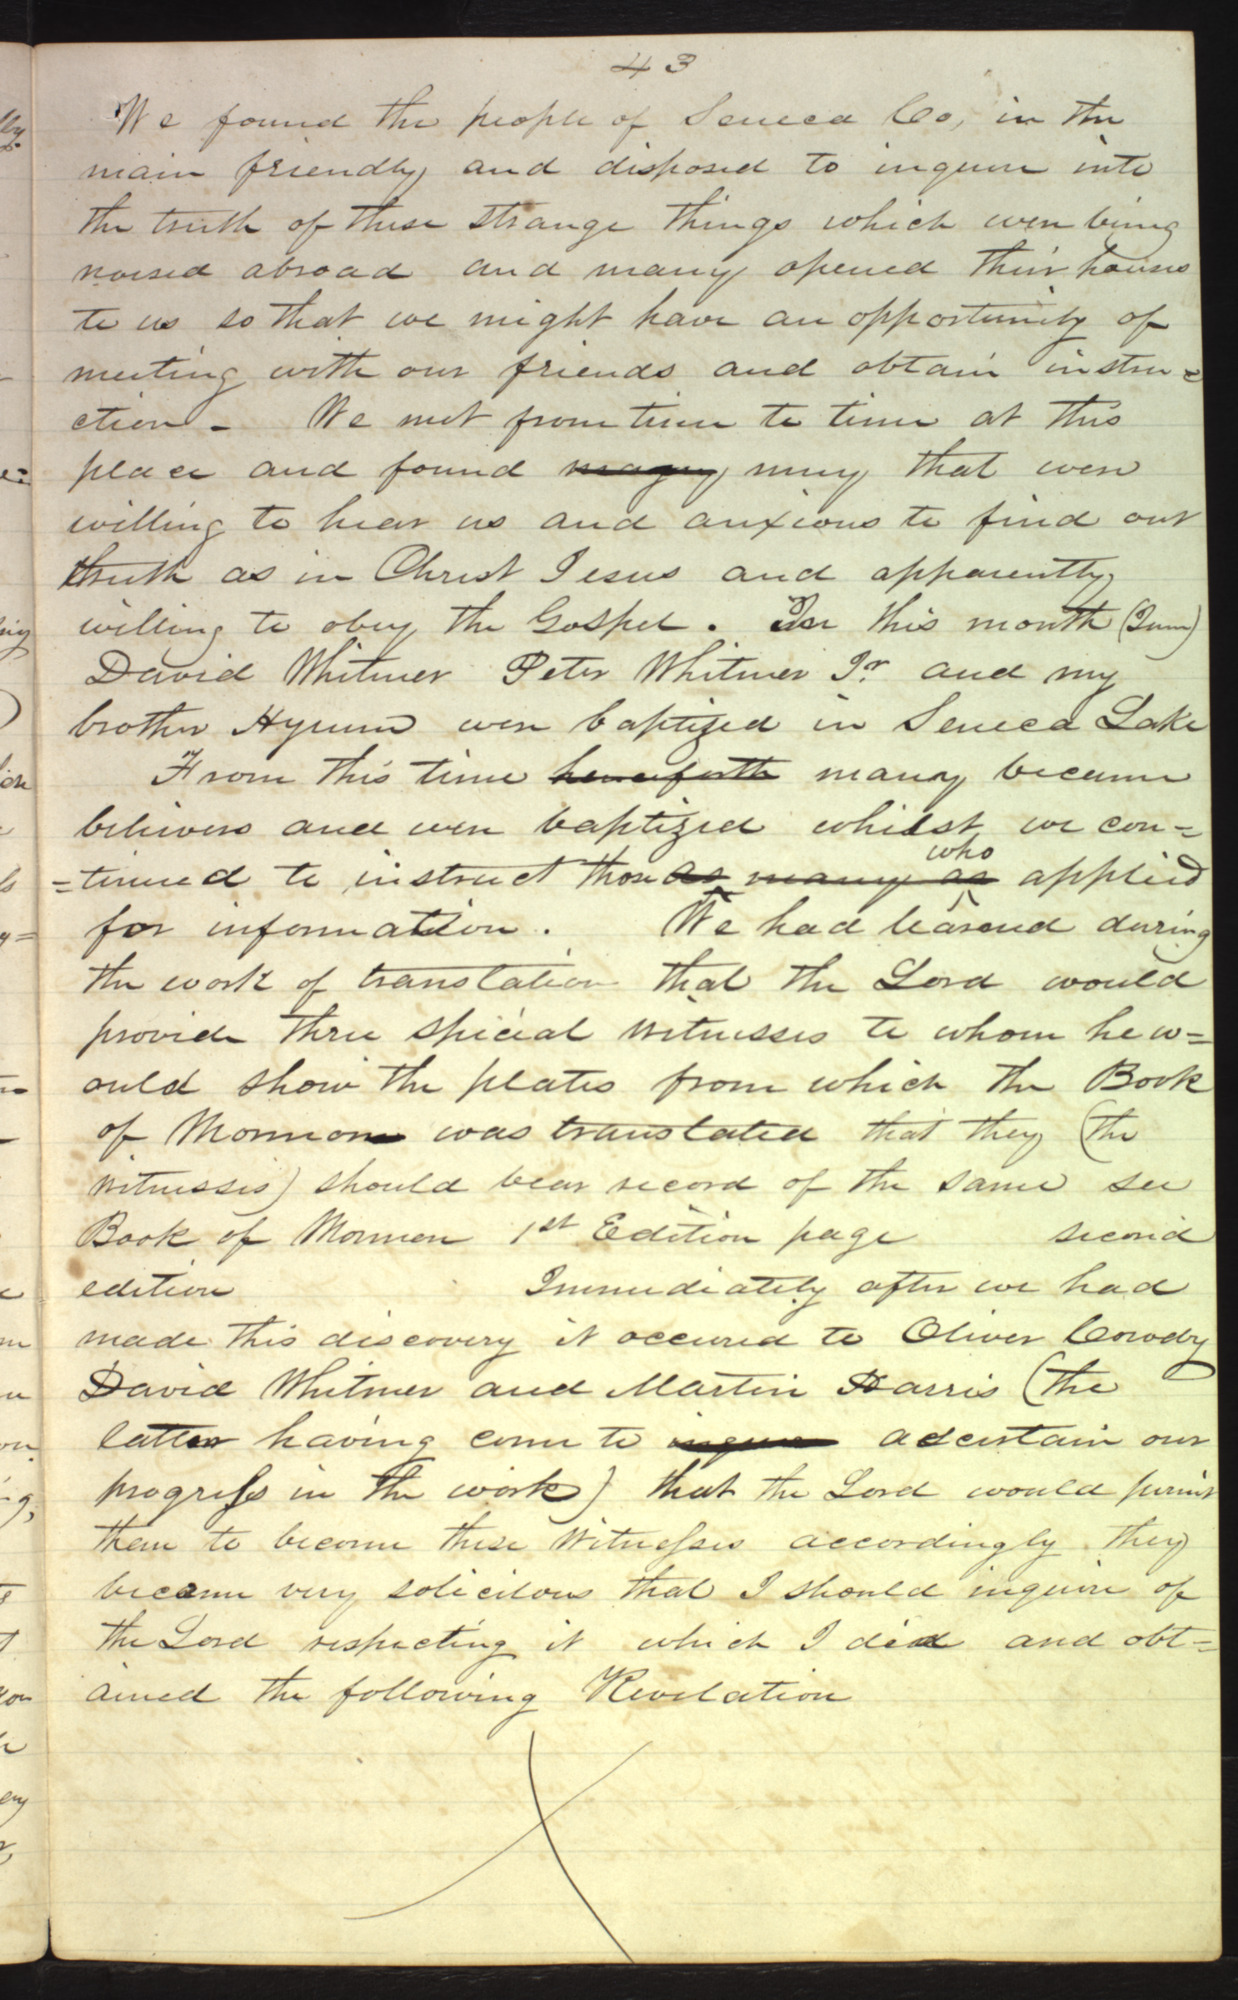 43
We found the people of Seneca Co, in the
main friendly and disposed to inquire into
the truth of these strange things which were being
noised abroad and many opened their houses
to us so that we might have an opportunity of
meeting with our friends and obtain instru=
ction - We met from time to time at this
place and found many many that were
willing to hear us and anxious to find out
truth as in Christ Jesus and apparently
willing to obey the Gospel. In this month (June)
David Whitmer Peter Whitmer Jr. and my
brother Hyrum were baptized in Seneca Lake
From this time henceforth many became
believers and were baptized whilst we con=
=tinued to instruct those as many as who applied
for information. We had learend during
the work of translation that the Lord would
provide three special witnesses to whom he w=
ould show the plates from which the Book
of Mormon was translated that they (the
witnesses) should bear record of the same see
Book of Mormon 1st Edition page second
edition Immediately after we had
made this discovery it occured to Oliver Cowdry
David Whitmer and Martin Harris (the
latter having come to inquire ascertain our
progress in the work) that the Lord would permit
them to become these witnesses accordingly they
became very solicitous that I should inquire of
the Lord respecting it which I did and obt=
ained the following Revelation